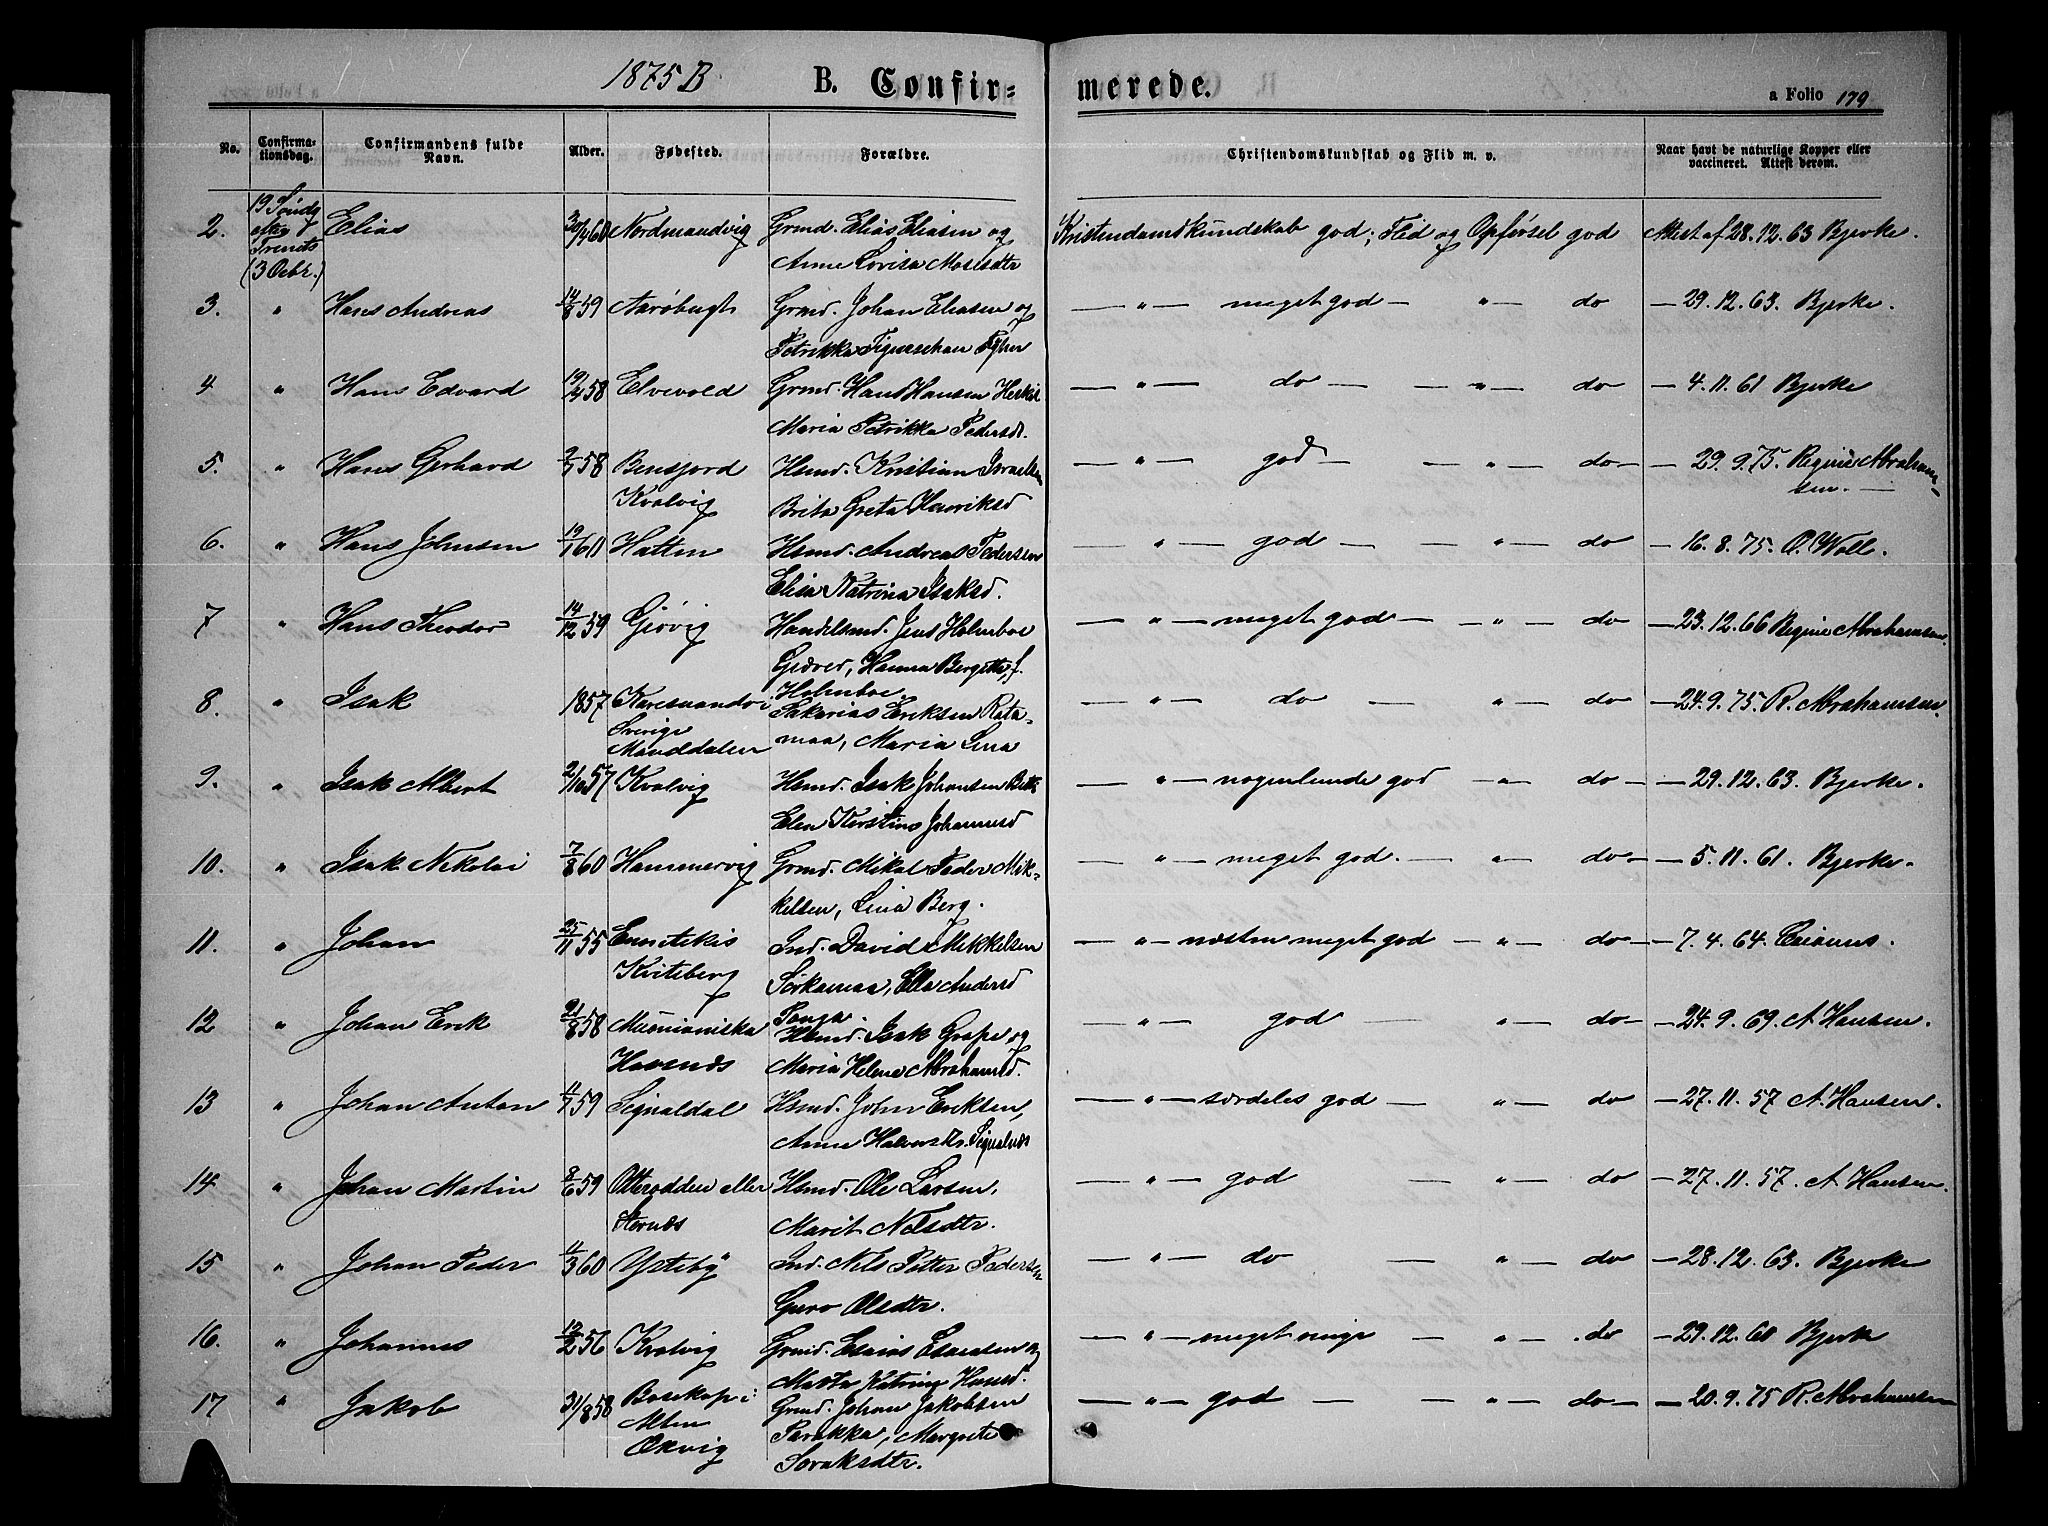 1875 B. B. Confir= merede. a Folio 179
No. Confirma-tionsdag. Confirmandens fulde Navn. Alder. Fødested. Forældre. Christendomskundskab og Flid m. v. Naar havt de naturlige Kopper eller vaccineret. Attest derom.
2. 19 Søndg Elias 30/4 60 Nordmandvig Grmd. Elias Eliasen og Kristendomskundskab god; Flid og Opførsel god Attest af 28.12.63 Bjerke.
efter Trinits (3 Octbr.) Anne Lovisa
3. " Hans Andreas 14/8 59 Aarøbugt Grmd. Johan Eliasen og — " — meget god — " — do — 29.12.63. Bjerke.
Petrikka
4 " Hans Edvard 19/4 58 Elvevold Grmd. Hans Hansen — " — do — — " — do — 4.11.61 Bjerke
Maria Petrikka Pedersdt.
5. " Hans Gerhard 2/7 58 Bensjord Hsmd. Kristian Israelsen — " — god — — " — do — — 29.9.75. Regine Abraham-
Kvalvig Brita Greta Henriksd sen. —
6. " Hans Johnsen 19/1 60 Hatten Hsmd. Andreas Pedersen — " — god — — " — do — 16.8.75. O. Woll.
Elisa Katrina Isaksd.
7 " Hans Theodor 14/12 59 Gjøvig Handelsmd. Jens Holmboe — " — meget god — — " — do — 23.12.66 Regine Abrahamsen
Giæver, Hanna Bergitte, f.
Holmboe.
8. " Isak 1857 Karesuando i Sakarias Eriksen Rata- — " — do — " — do — 24.9.75. R. Abrahamsen.
Sverige maa, Maria Lena
Manddalen
9. " Isak Albert 21/10 57 Kvalvig Hsmd. Isak Johansen — " — nogenlunde god — " — do — — 29.12.63. Bjerke.
Elen Kirstine Johannesd
10. " Isak Nikolai 7/8 60 Hammervig Grmd. Mikal Peder Mik- — " — meget god. — " — do — — 5.11.61. Bjerke.
kelsen, Lina Berg.
11. " Johan 25/11 55 Enontekis Ind. David Mikkelsen — " — næsten meget god — " — do — — 7.4.64.
Kviteberg Sorkamaa, Ella Andersd
12 " Johan Erik 21/8 58 Muonianiska Hsmd. Isak Grape og — " — god — " — do — — 24.9.69. A Hansen.
Havnnæs Maria Helene Abrahamsd.
13 " Johan Anton 11/7 59 Signaldal Hsmd. John Eriksen, — " — særdeles god — " — do — 27.11.57 A. Hansen.
Anne Halvorsdtr. Signalnæs
14 " Johan Martin 8/6 59 Otteredden eller Hsmd. Ole Larsen, — " — god — " — do — 27.11.57. A Hansen.
Stornæs Marit Nilsdtr.
15 " Johan Peder 11/3 60 Ysteby Ind. Nils Petter Pedersen — " — do — " — do — 28.12.63. Bjerke
Guro Olsdtr.
16. " Johannes 12/2 56 Kvalvig Grmd. Esaias Esaiasen og — " — meget ringe — " — do — 29.12.60 Bjerke
Marta Katrina Hansd.
17 " Jakob 31/8 58 Bosekop i: Grmd. Johan Jakobsen — " — god — " — do — — 20.9.75 R. Abrahamsen
Alten Parakka, Margrete
Oxvig Soraksdtr.